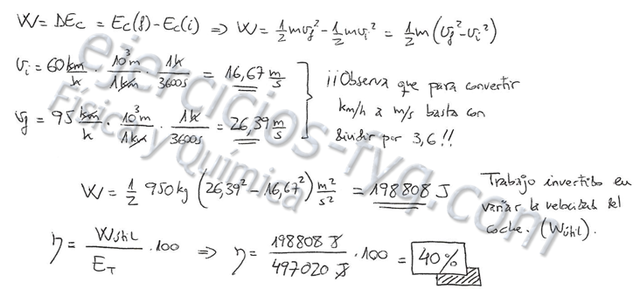 W = ΔEc = Ec(f) - Ec(i) ⇒ W = 1/2 m v_f² - 1/2 m v_i² = 1/2 m (v_f² - v_i²)
v_i = 60 km/h · 10³ m/1 km · 1 h/3600 s = 16,67 m/s
v_f = 95 km/h · 10³ m/1 km · 1 h/3600 s = 26,39 m/s
¡¡Observa que para convertir
km/h a m/s basta con
dividir por 3,6!!
W = 1/2 950 kg (26,39² - 16,67²) m²/s² = 198808 J
Trabajo invertido en
variar la velocidad del
coche. (Wútil).
η = Wútil/E_T · 100 ⇒ η = 198808 J/497020 J · 100 = 40%
ejercicios-fyq.com
Física y Química